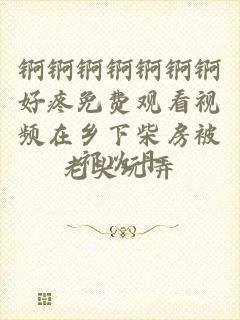 锕锕锕锕锕锕锕
好疼免费观看视
频在乡下柴房被
老头玩弄